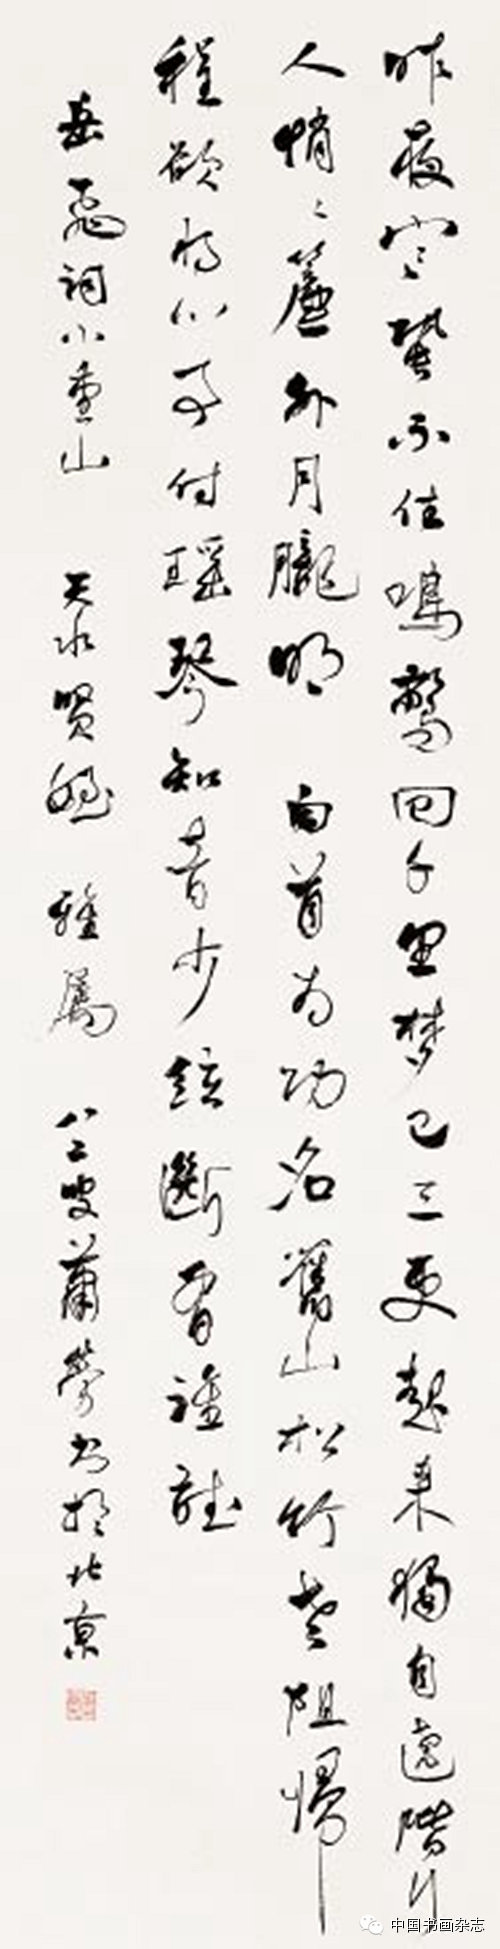 昨夜寒蛩不住鳴驚回千里梦已三更起来獨自遶階行
人悄〻簾外月朧明 白首为功名舊山松竹老阻歸
程欲将心事付瑶琴知音少絃斷有誰聽
岳飛詞小重山 天水贤 雅属 八二叟蕭勞书於北京
中国书画杂志